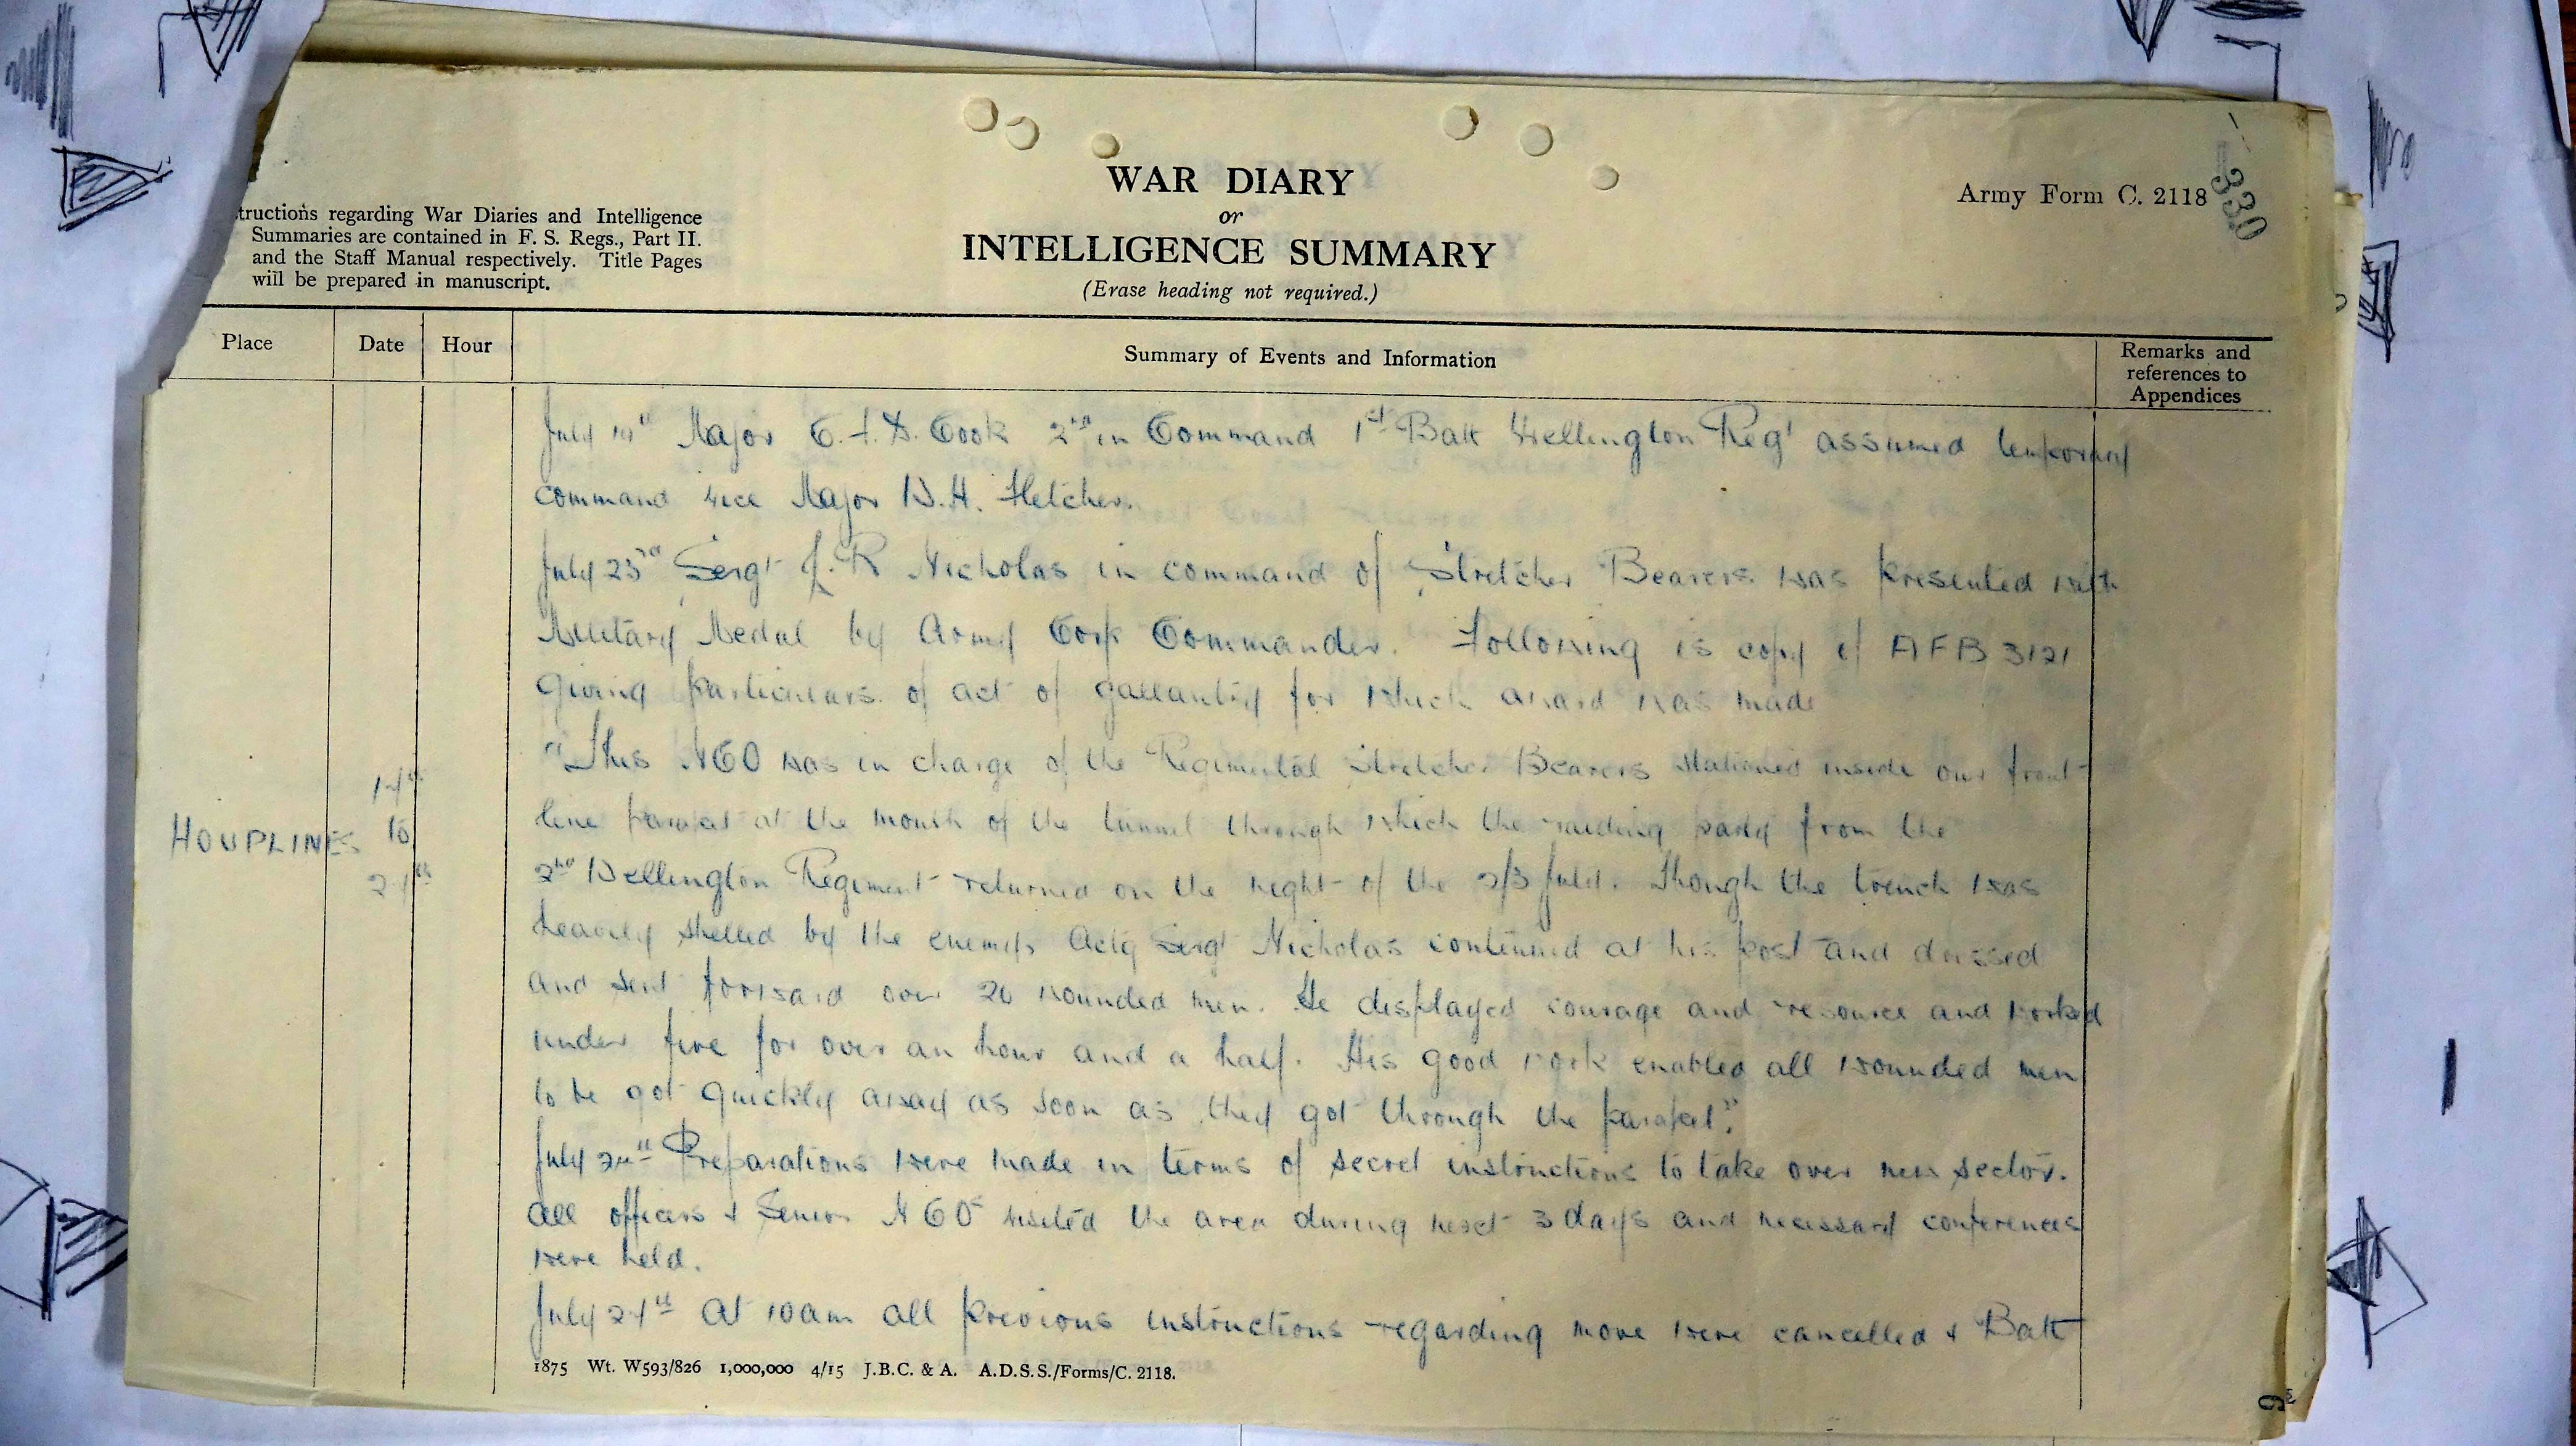 WAR DIARY
or
INTELLIGENCE SUMMARY
(Erase heading not required.)
Army Form C. 2118
330
tructions regarding War Diaries and Intelligence
Summaries are contained in F. S. Regs., Part II.
and the Staff Manual respectively. Title Pages
will be prepared in manuscript.
Place Date Hour Summary of Events and Information Remarks and
references to
Appendices
July Major C.F.D. Cook 2nd in Command 1st Batt Wellington Regt assumed temporary
command vice Major W.H. Fletcher.
July 23rd Sergt J.R Nicholas in command of Stretcher Bearers was presented with
Military Medal by Army Corp Commander. Following is copy of AFB 3121
giving particulars of act of gallantry for which award was made
"This NCO was in charge of the Regimental Stretcher Bearers stationed inside our front
line parapet at the mouth of the tunnel through which the raiding party from the
2nd Wellington Regiment returned on the night of the 2/3 July. Though the trench was
heavily shelled by the enemy, Actg Sergt Nicholas continued at his post and dressed
and sent forward over 20 wounded men. He displayed courage and resource and worked
under fire for over an hour and a half. His good work enabled all wounded men
to be got quickly away as soon as they got through the parapet".
July Preparations were made in terms of secret instructions to take over new sector.
All officers & Senior NCOs visited the area during next 3 days and necessary conferences
were held.
July At 10am all previous instructions regarding move were cancelled & Batt
HOUPLINES to
1875 Wt. W593/826 1,000,000 4/15 J.B.C. & A. A.D.S.S./Forms/C. 2118.